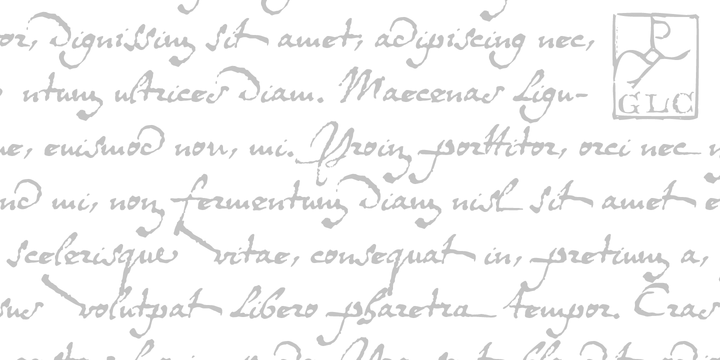 or, dignissim sit amet, adipiscing nec,
ntum ultrices diam. Maecenas ligu-
GLC
ue, euismod non, mi. Proin porttitor, orci nec n
nd mi, non fermentum diam nisl sit amet e
scelerisque vitae, consequat in, pretium a,
sus volutpat libero pharetra tempor. Cras